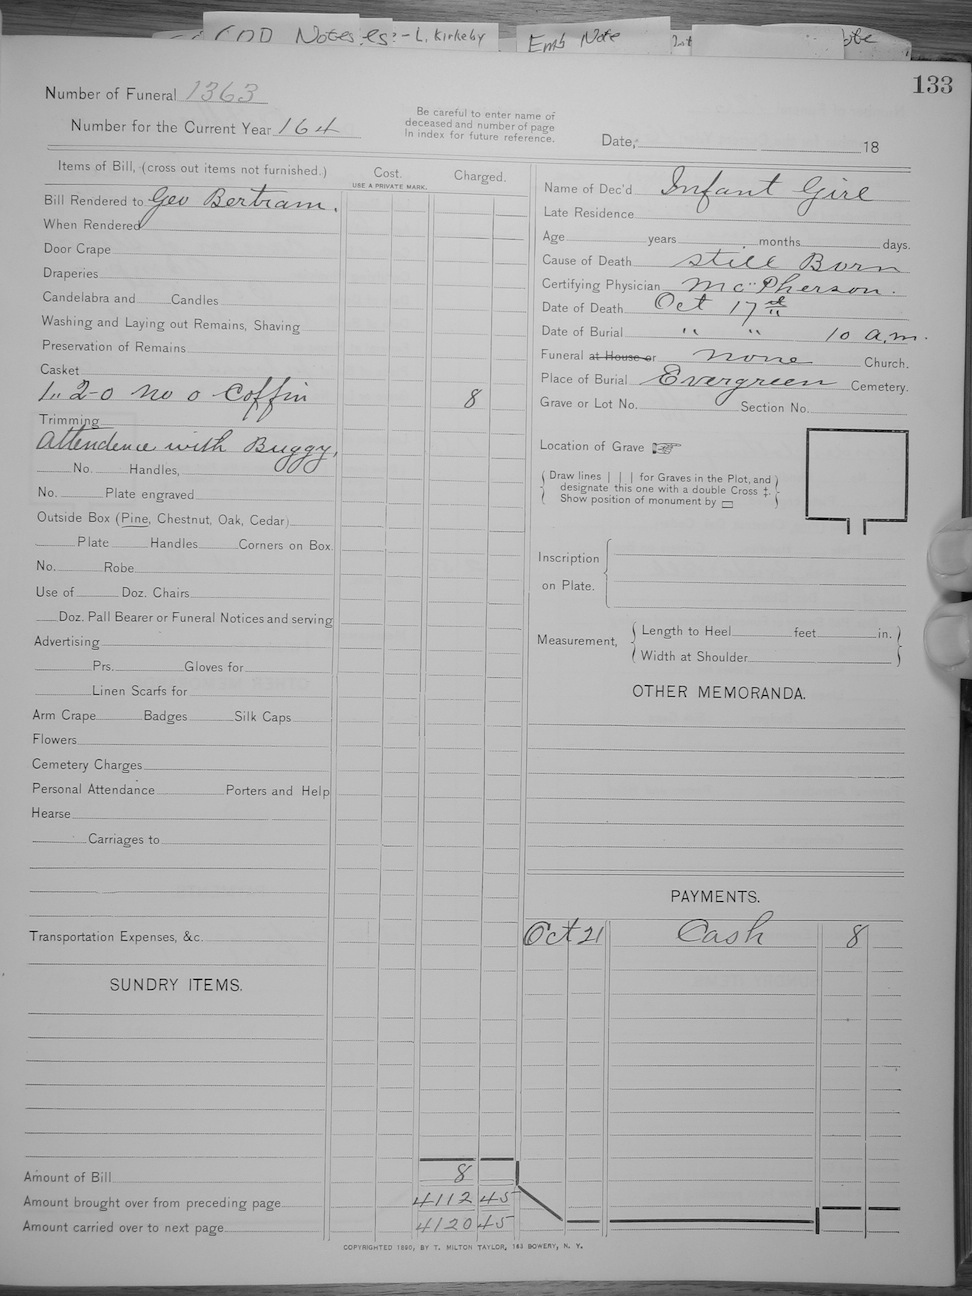 COD Notes es:- L. Kirkeby
Emb Note
133
Number of Funeral 1363
Number for the Current Year 164
Be careful to enter name of
deceased and number of page
in index for future reference.
Date, 18
Items of Bill, (cross out items not furnished.)
Cost.
USE A PRIVATE MARK.
Charged.
Bill Rendered to Geo Bertram.
When Rendered
Door Crape
Draperies
Candelabra and Candles
Washing and Laying out Remains, Shaving
Preservation of Remains
Casket
1,, 2-0 no o Coffin 8
Trimming
Attendence with Buggy,
No. Handles,
No. Plate engraved
Outside Box (Pine, Chestnut, Oak, Cedar)
Plate Handles Corners on Box.
No. Robe
Use of Doz. Chairs
Doz. Pall Bearer or Funeral Notices and serving
Advertising
Prs. Gloves for
Linen Scarfs for
Arm Crape Badges Silk Caps
Flowers
Cemetery Charges
Personal Attendance Porters and Help
Hearse
Carriages to
Transportation Expenses, &c.
SUNDRY ITEMS.
Amount of Bill 8
Amount brought over from preceding page 4112 45
Amount carried over to next page 4120 45
Name of Dec'd Infant Girl
Late Residence
Age years months days.
Cause of Death still Born
Certifying Physician McPherson.
Date of Death Oct 17
Date of Burial " " 10 a.m.
Funeral at House or none Church.
Place of Burial Evergreen Cemetery.
Grave or Lot No. Section No.
Location of Grave
Draw lines | | | for Graves in the Plot, and
designate this one with a double Cross ‡.
Show position of monument by
Inscription
on Plate.
Measurement,
Length to Heel feet in.
Width at Shoulder
OTHER MEMORANDA.
PAYMENTS.
Oct 21 Cash 8
COPYRIGHTED 1890, BY T. MILTON TAYLOR, 163 BOWERY, N. Y.